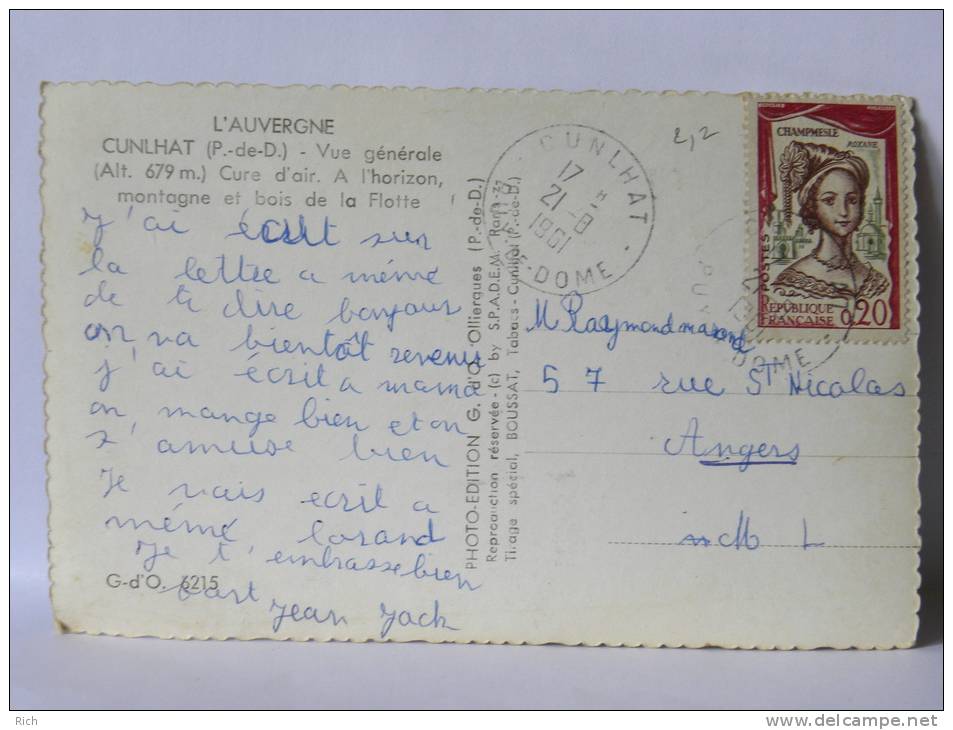 L'AUVERGNE
CUNLHAT (P.-de-D.) - Vue générale
(Alt. 679 m.) Cure d'air. A l'horizon,
montagne et bois de la Flotte
j'ai écrit sur
la lettre a mémé
de te dire bonjour
on va bientôt revenir
j'ai écrit a mama
on mange bien et on
s'amuse bien
Je vais ecrit a
mémé
Je t'embrasse bien
Jean Jack
G-d'O. 6215
PHOTO-EDITION G. d'O. Ollierques (P.-de-D.)
Reproduction réservée - (c) by S.P.A.D.E.M.
Tirage spécial, BOUSSAT, Tabacs - Cunlhat (P.-de-D.)
CUNLHAT
17 H
21-8
1961
DOME
2,2
CHAMPMESLE
ROXANE
POSTES
REPUBLIQUE
FRANCAISE
0,20
DOME
M Raymond
57 rue St Nicolas
Angers
M L
Rich
www.delcampe.net